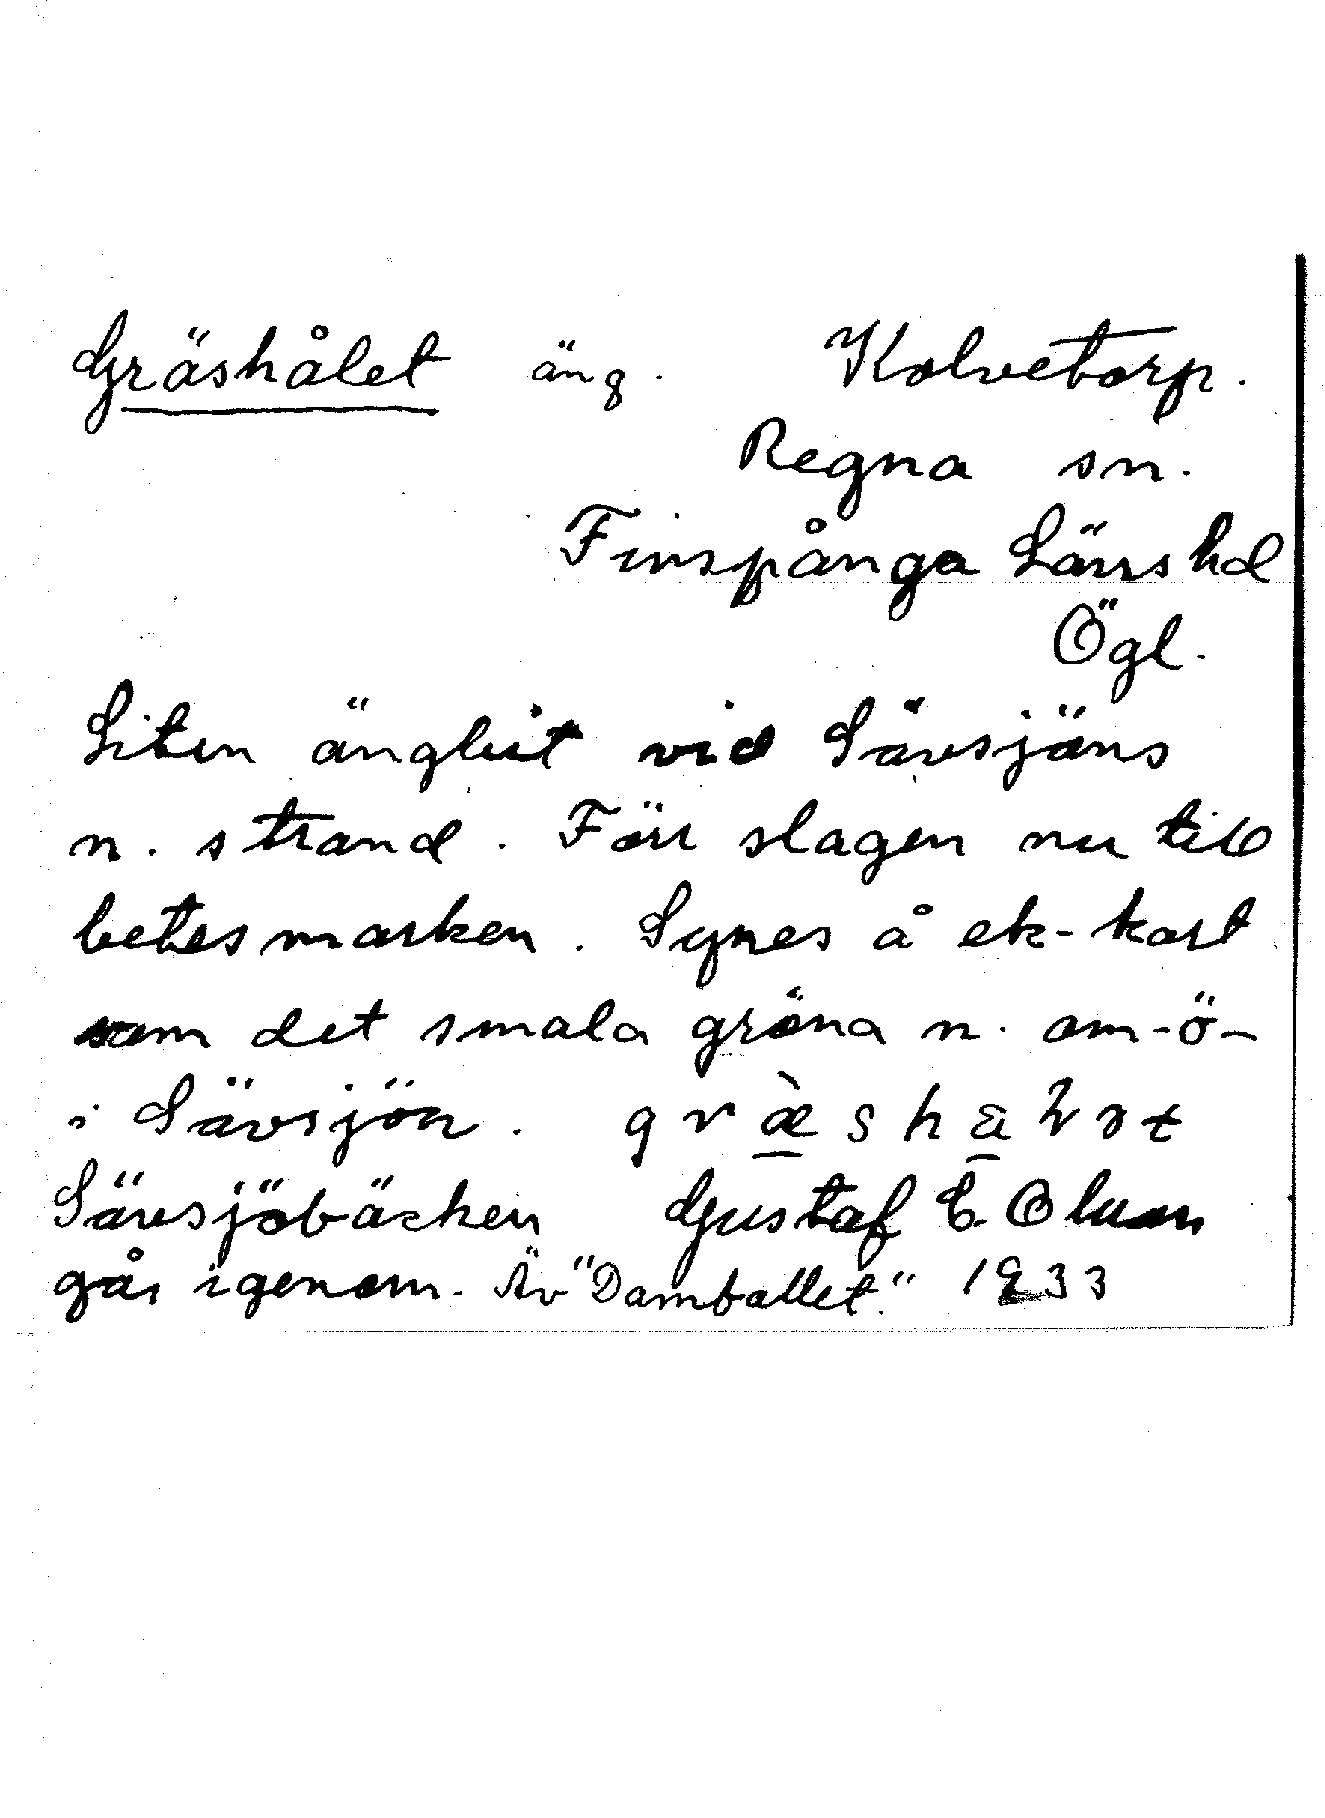 Gräshålet äng. Kolvetorp.
Regna sn.
Finspånga Läns hd
Ögl.
Liten änglut vid Sävsjöns
n. strand. Förr slagen nu till
betesmarken. Synes å ek-kart
som det smala gröna n. om -ö-
i Sävsjön. græ̀shålət
Sävsjöbäcken Gustaf E Olsson
går igenom. Äv "Damballet." 1933